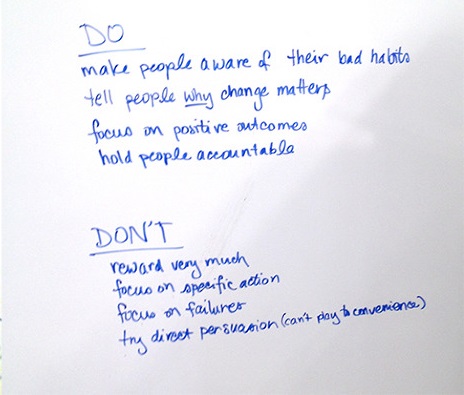 DO
make people aware of their bad habits
tell people why change matters
focus on positive outcomes
hold people accountable
DON'T
reward very much
focus on specific action
focus on failures
try direct persuasion (can't play to convenience)